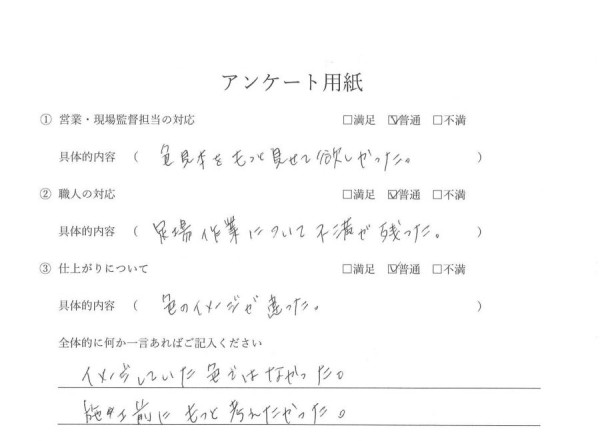 アンケート用紙
① 営業・現場監督担当の対応 □満足 ☑普通 □不満
具体的内容 ( 色見本をもっと見せて欲しかった。 )
② 職人の対応 □満足 ☑普通 □不満
具体的内容 ( 足場作業について不満が残った。 )
③ 仕上がりについて □満足 ☑普通 □不満
具体的内容 ( 色のイメージが違った。 )
全体的に何か一言あればご記入ください
イメージしていた色ではなかった。
施工前にもっと考えたかった。